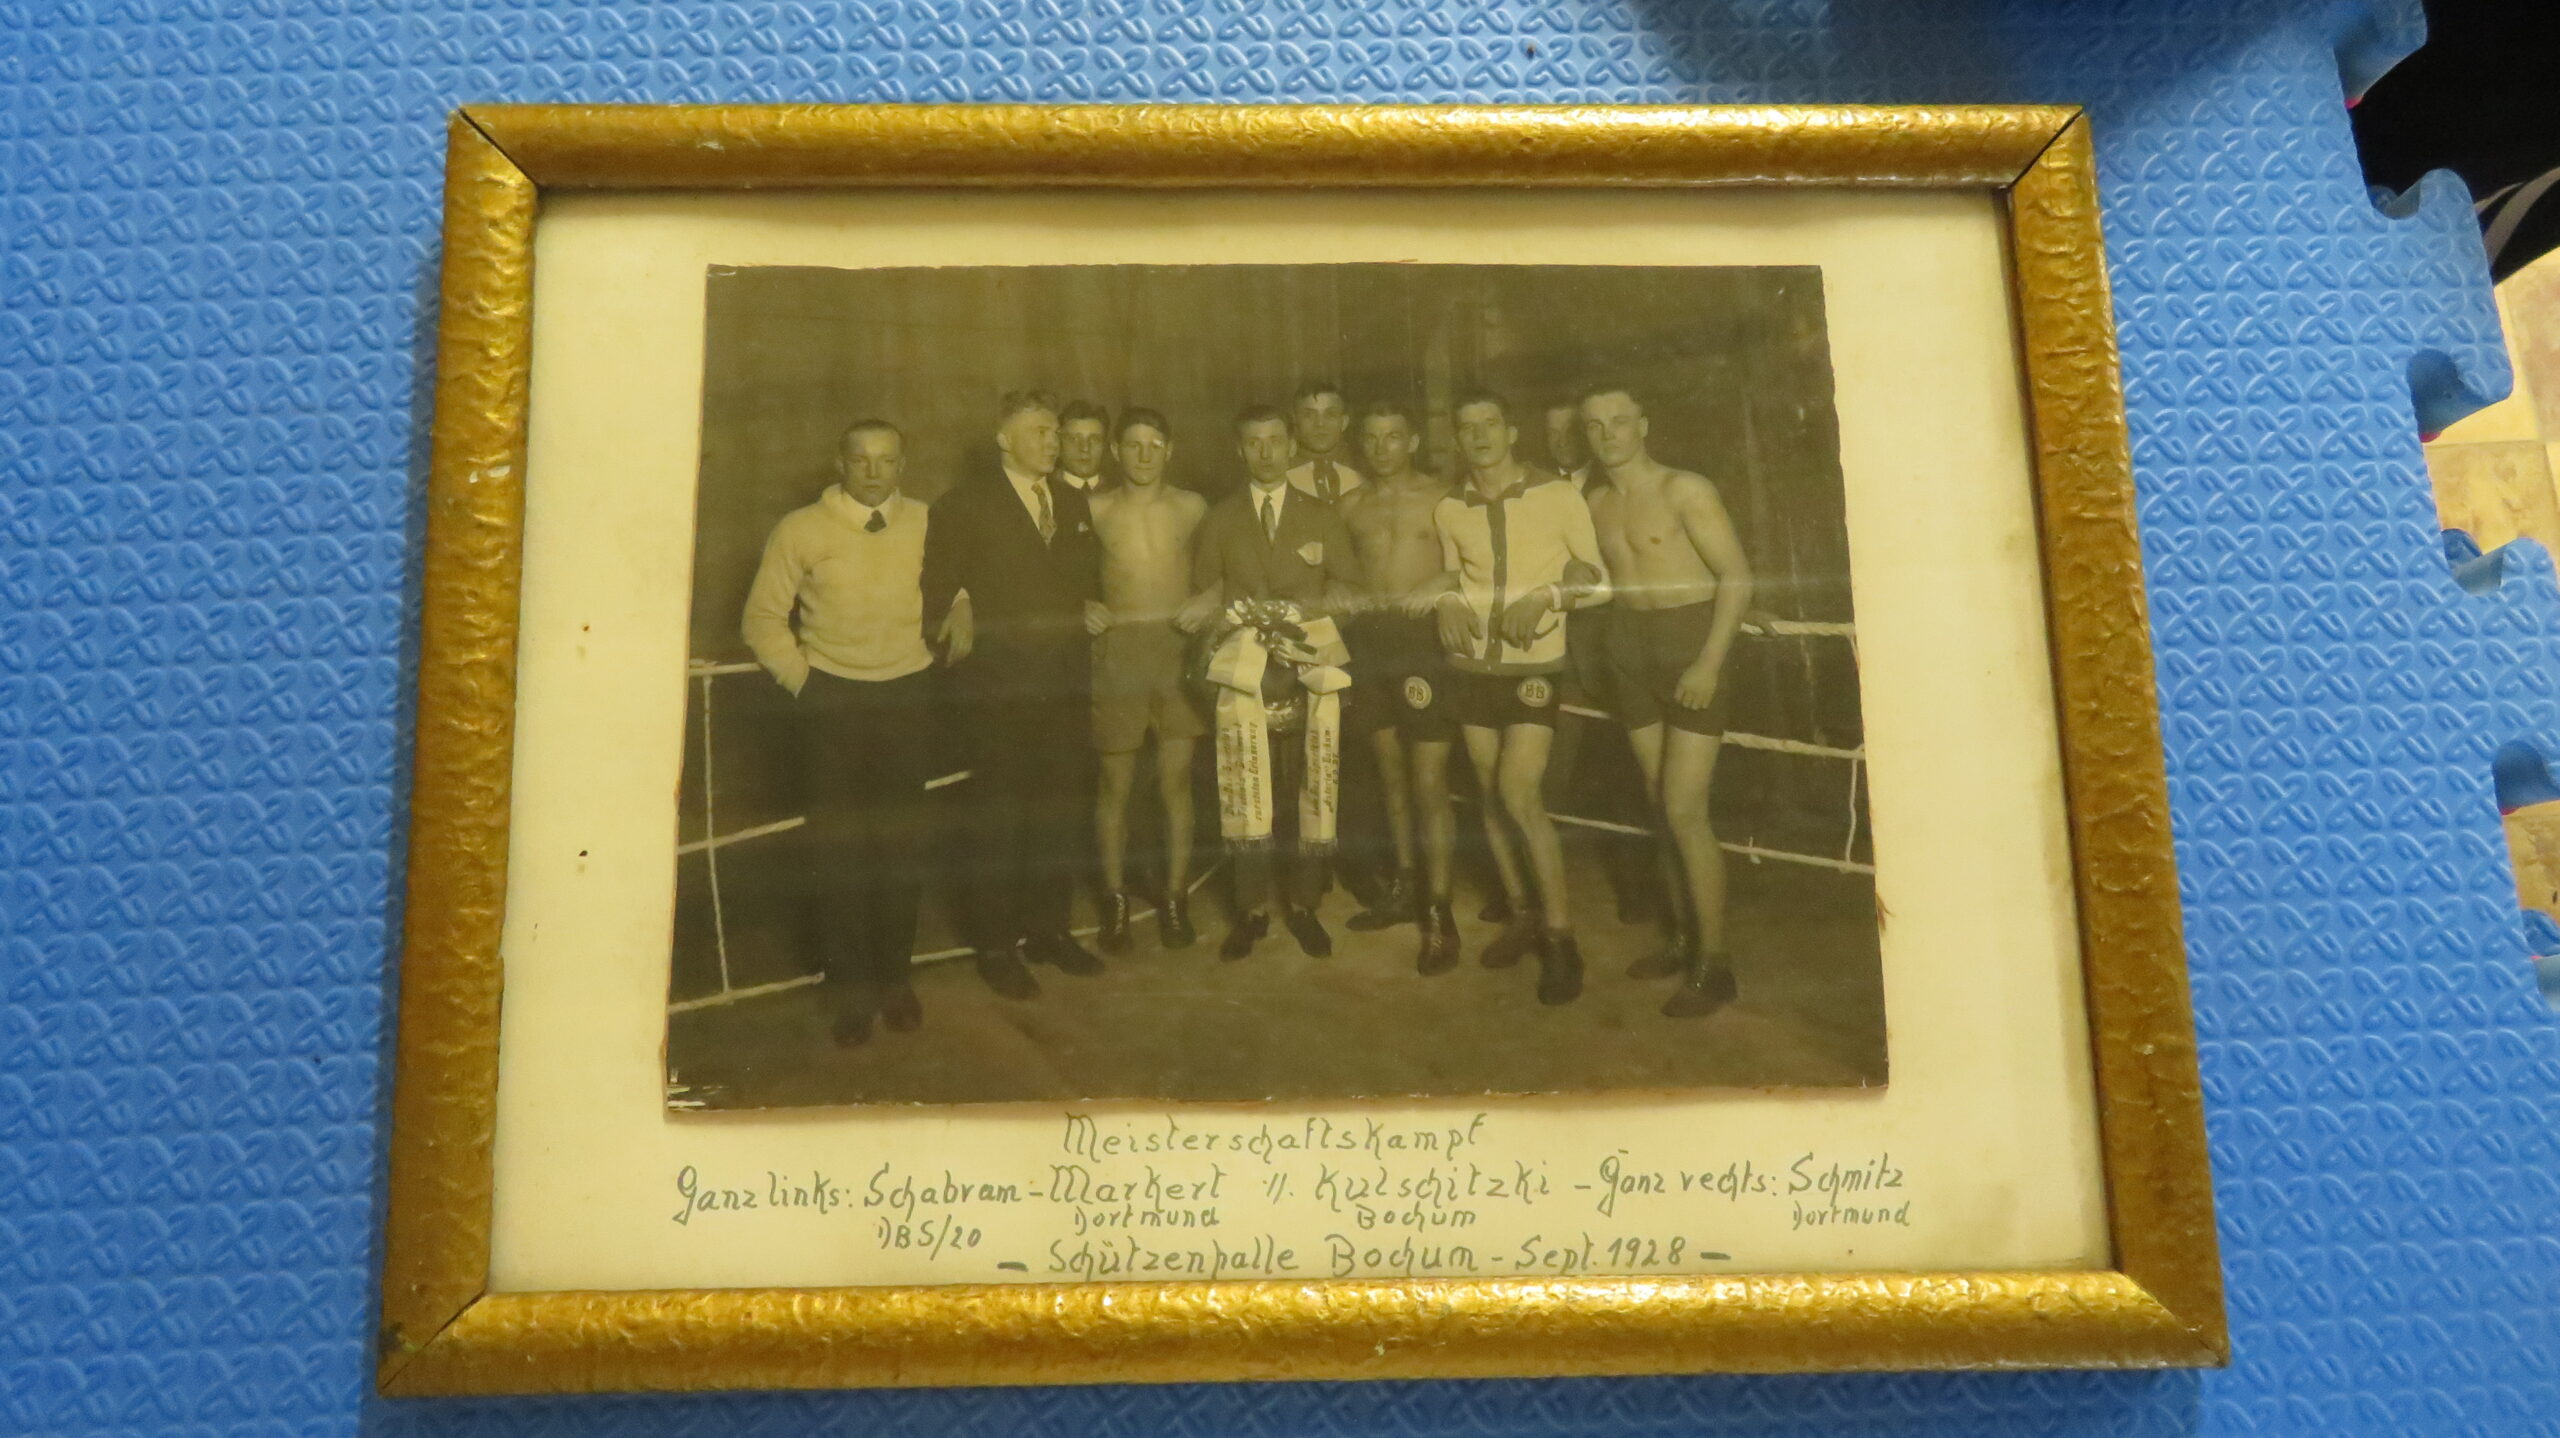 BB
BB
zur steten Erinnerung
Bochum
Meisterschaftskampf
Ganz links: Schabram – Markert .//. Kulschitzki – Ganz rechts: Schmitz
DBS/20 Dortmund Bochum Dortmund
– Schützenhalle Bochum – Sept. 1928 –